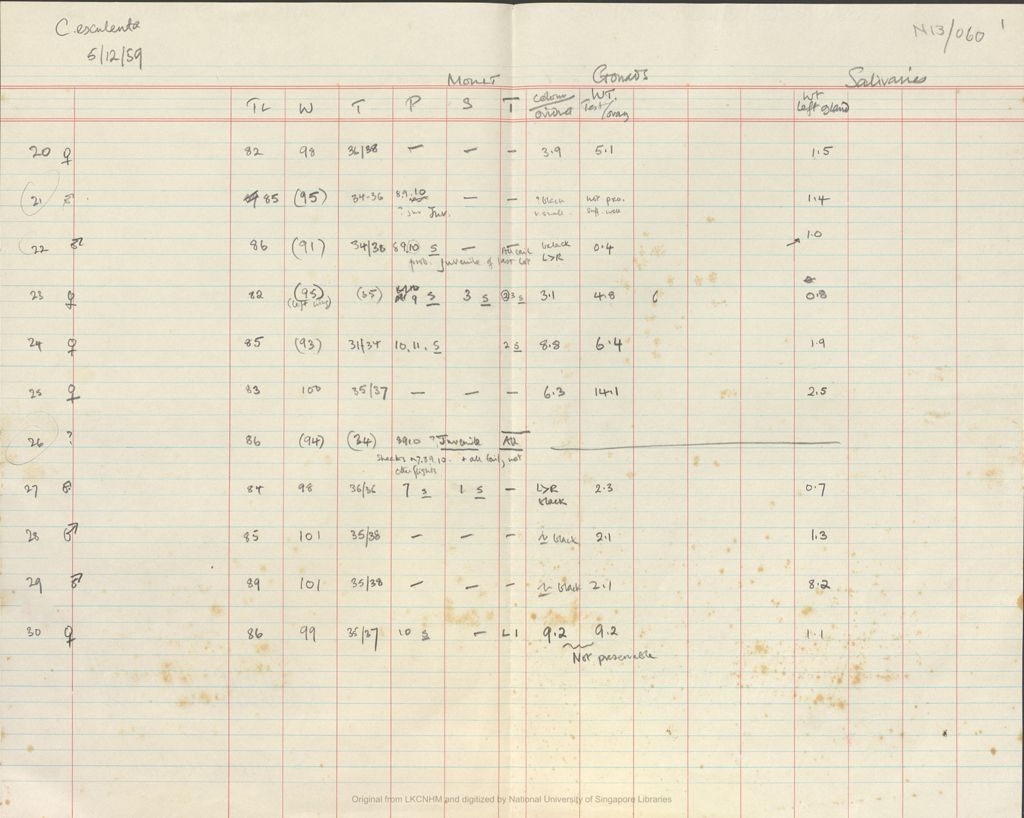 C. esculenta
5/12/59
N13/060 1
Moult Gonads Salivaries
TL W T P S T colour/oviduct WT. Test/ovary WT left gland
20 ♀ 82 98 36/38 — — — 3.9 5.1 1.5
21 85 (95) 34-36 8.9.10 — — ? black not pre. 1.4
? juv Juv.
22 ♂ 86 (91) 34/38 8910 s — black 0.4 1.0
prob. juvenile of last lot L>R
23 ♀ 82 (95) (35) 9 s 3 s 3 s 3.1 4.8 0.8
(left wing)
24 ♀ 85 (93) 31/34 10, 11. s 2 s 8.8 6.4 1.9
25 ♀ 83 100 35/37 — — — 6.3 14.1 2.5
26 ? 86 (94) (34) 8910 ? Juvenile All
Sheaths 7.8.9.10. + all tail, not
other flights
27 84 98 36/36 7 s 1 s — L>R 2.3 0.7
black
28 ♂ 85 101 35/38 — — — black 2.1 1.3
29 ♂ 89 101 35/38 — — — black 2.1 8.2
30 ♀ 86 99 35/37 10 s — L1 9.2 9.2 1.1
Not preservable
Original from LKCNHM and digitized by National University of Singapore Libraries